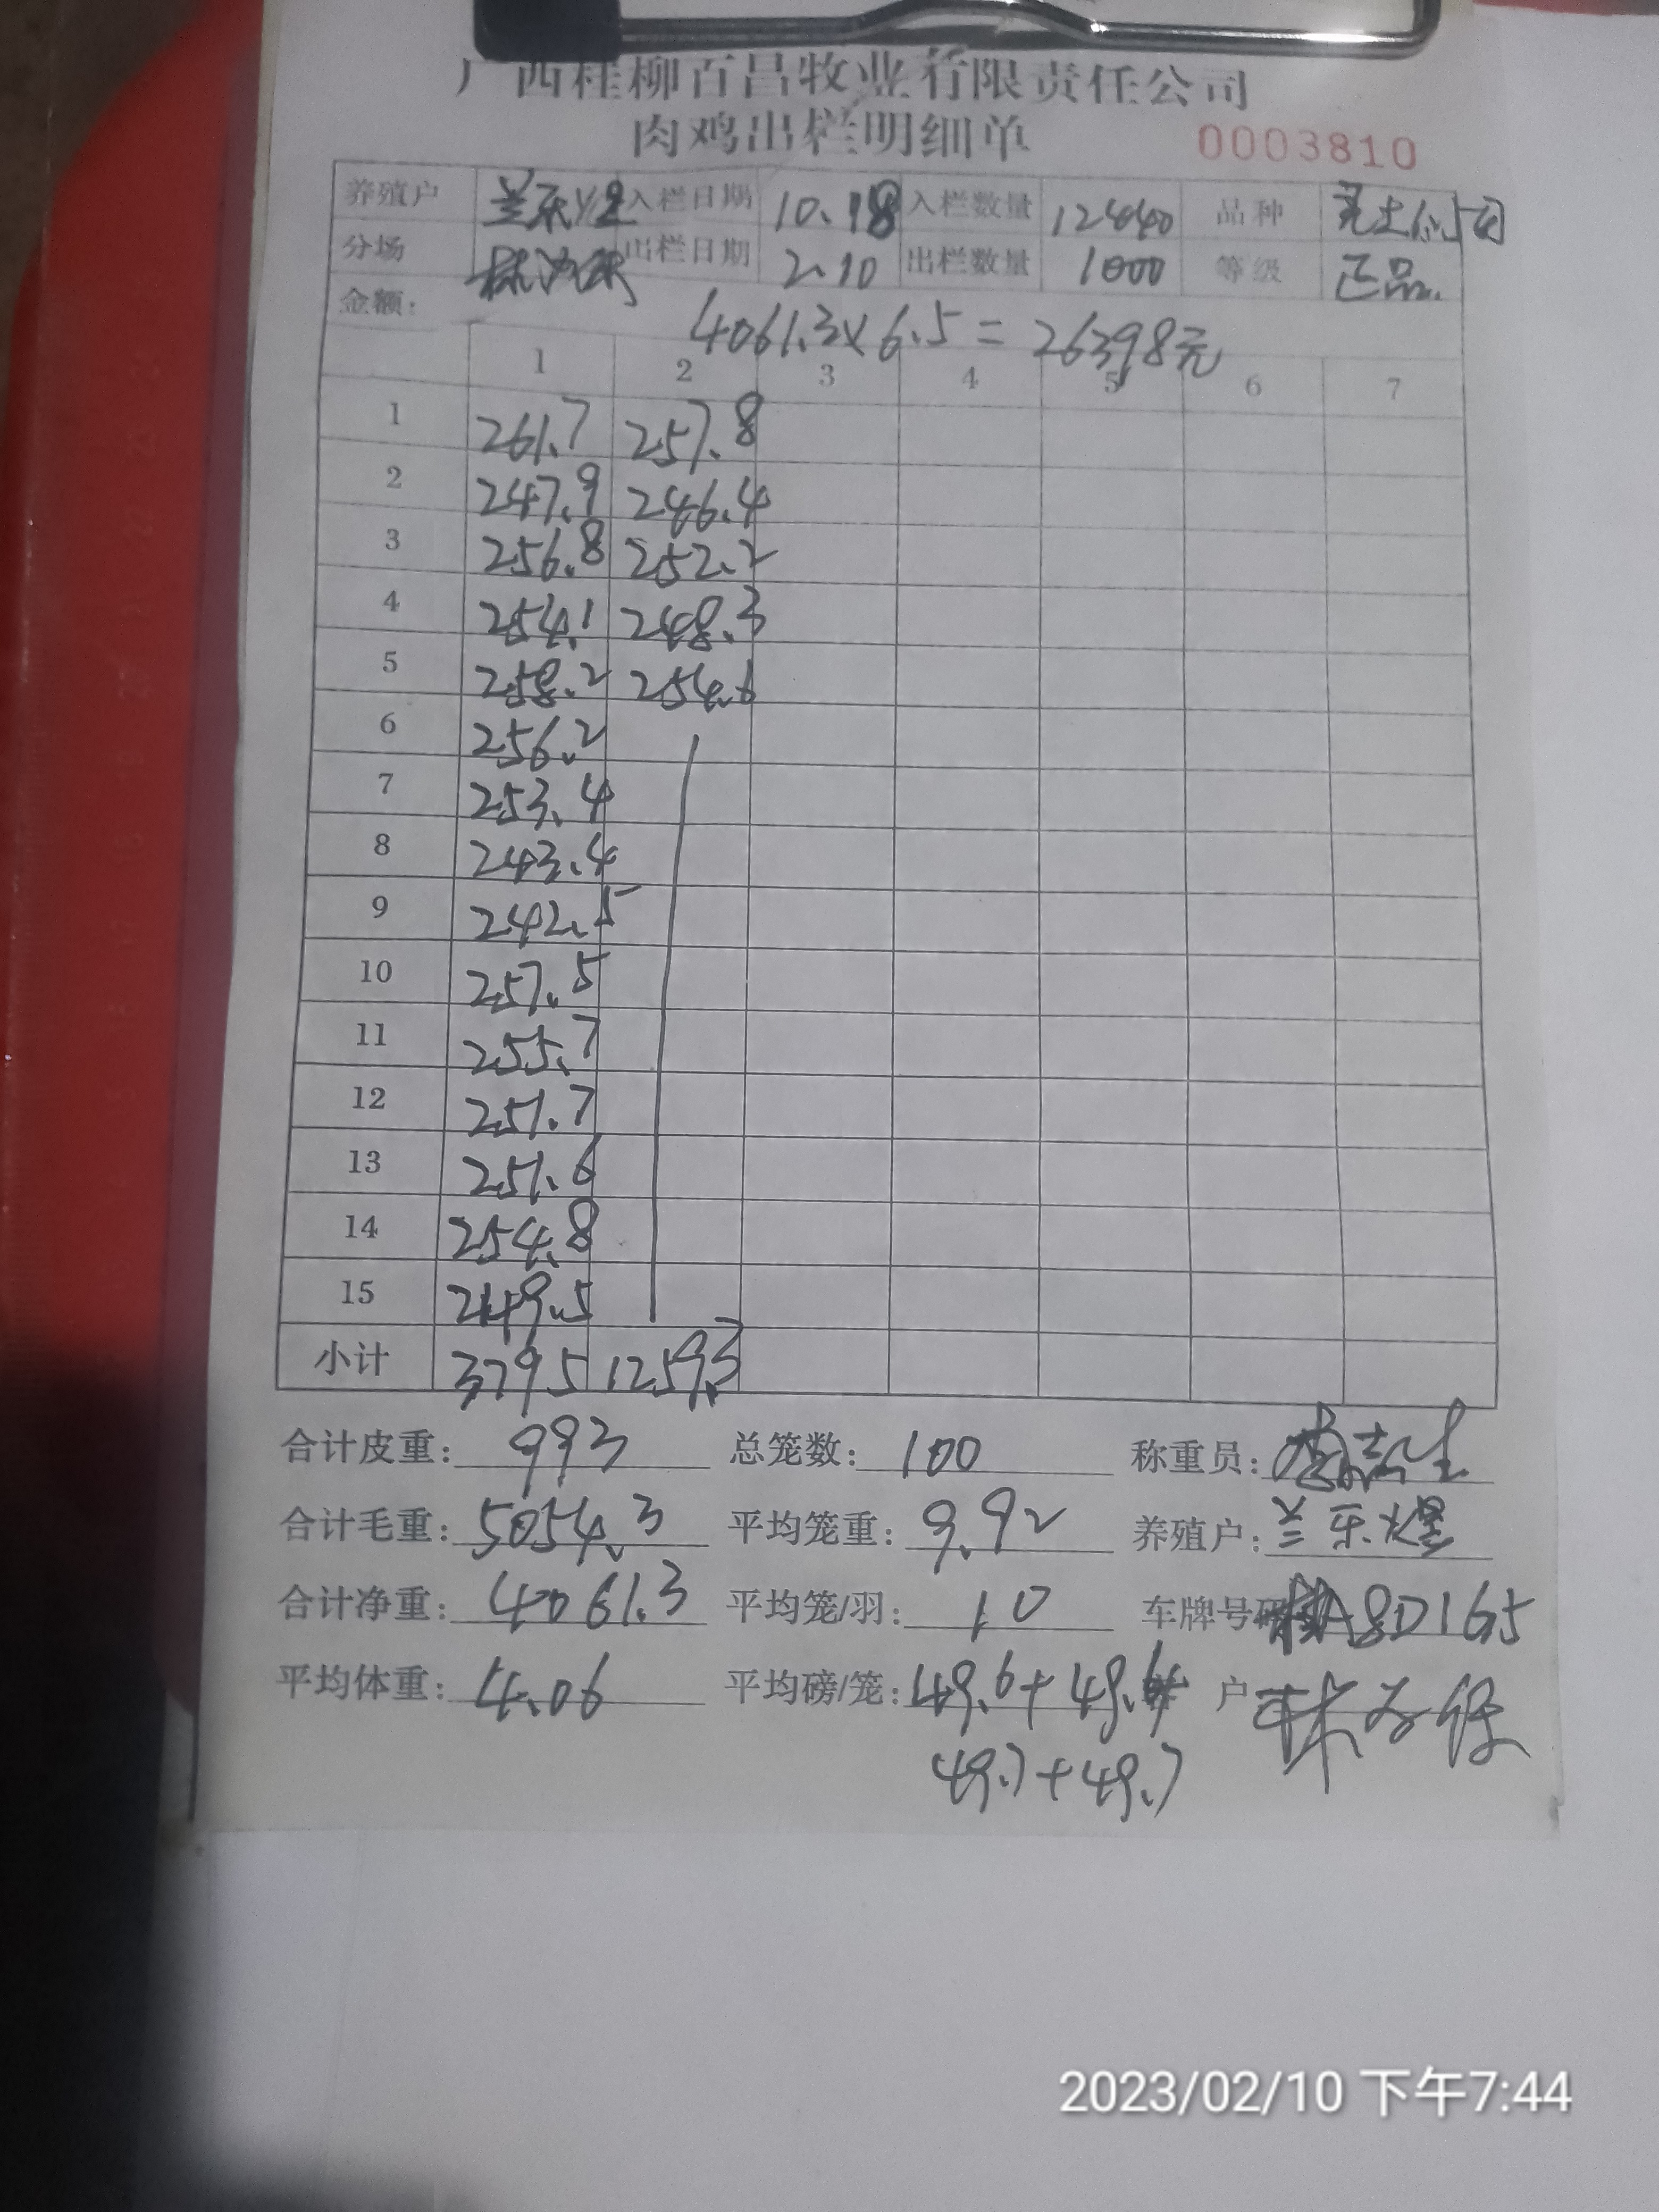 广西桂柳百昌牧业有限责任公司
肉鸡出栏明细单 0003810
养殖户 兰乐煌 入栏日期 10.18 入栏数量 12440 品种
分场 出栏日期 2.10 出栏数量 1000 等级 正品
金额: 4061.3×6.5=26398元
1 2 3 4 5 6 7
1 261.7 257.8
2 247.9 246.4
3 256.8 252.2
4 254.1 248.3
5 258.2 254.6
6 256.2
7 253.4
8 243.4
9 242.5
10 257.5
11 255.7
12 251.7
13 251.6
14 254.8
15 249.5
小计 3795 1259.3
合计皮重: 993 总笼数: 100 称重员:
合计毛重: 5054.3 平均笼重: 9.92 养殖户: 兰乐煌
合计净重: 4061.3 平均笼/羽: 10 车牌号码 A8D165
平均体重: 4.06 平均磅/笼: 49.6+49.6+ 户
49.7+49.7
2023/02/10 下午7:44